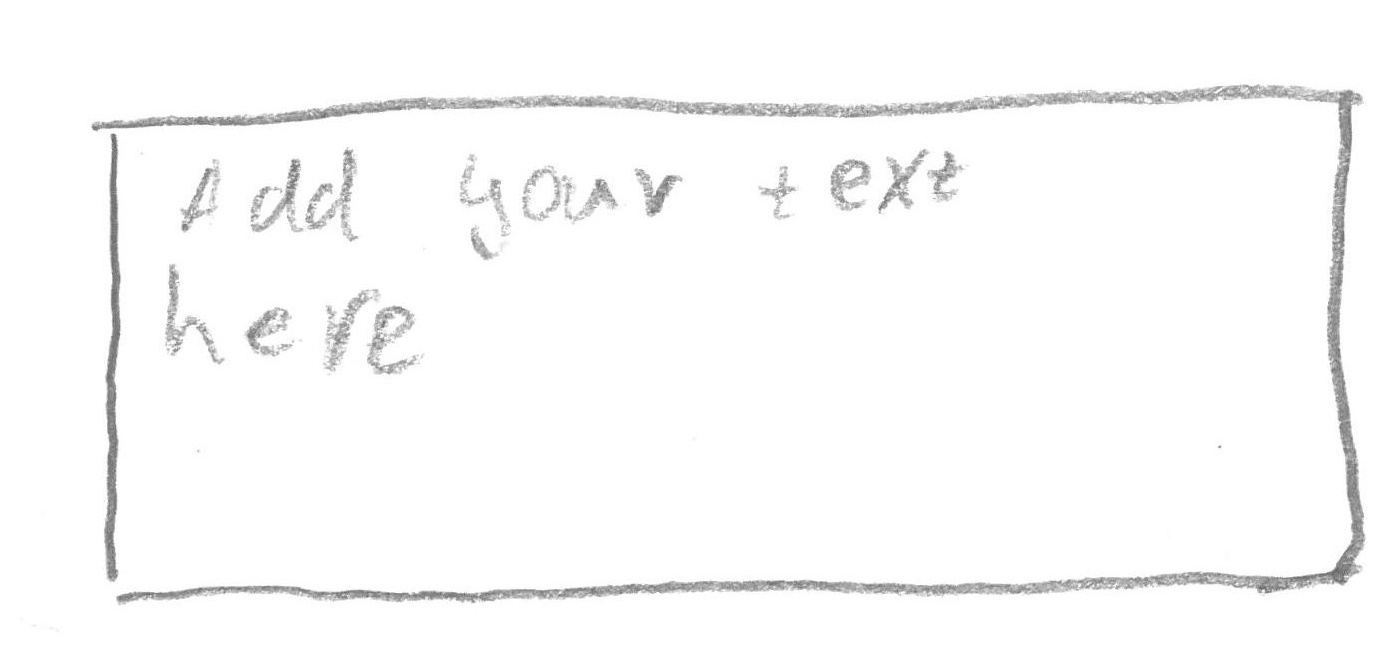 Add your text
here